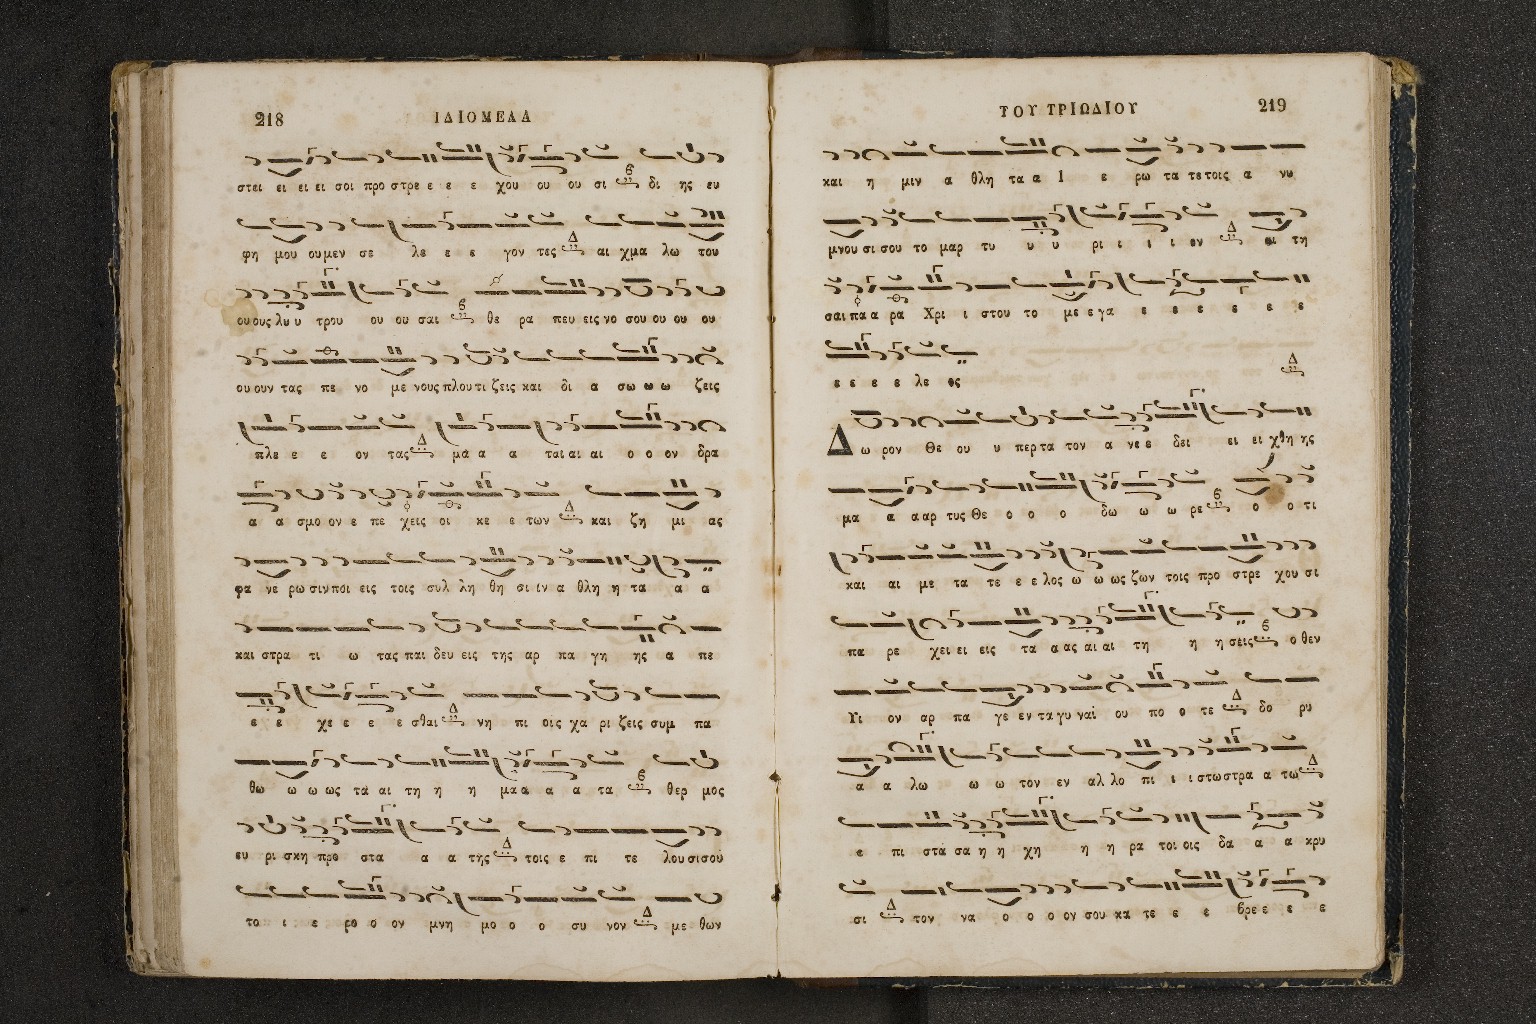 218
ΙΔΙΟΜΕΛΑ
στει ει ει ει σοι προ στρε ε ε ε χου ου ου σι δι ης ευ
φη μου ου μεν σε λε ε ε γον τες αι χμα λω του
ου ους λυ υ τρου ου ου σαι θε ρα πευ εις νο σου ου ου ου
ου ουν τας πε νο με νους πλου τι ζεις και δι α σω ω ω ζεις
πλε ε ε ον τας μα α α ται αι αι ο ο ον δρα
α α σμο ον ε πε χεις οι κε ε των και ζη μι ας
φα νε ρω σιν ποι εις τοις συλ λη θη σι ιν α θλη η τα α α
και στρα τι ω τας παι δευ εις της αρ πα γη ης α πε
ε ε χε ε ε ε σθαι νη πι οις χα ρι ζεις συμ πα
θω ω ω ως τα αι τη η η μα α α α τα θερ μος
ευ ρι σκη προ στα α α της τοις ε πι τε λου σι σου
το ι ε ρο ο ον μνη μο ο ο συ νον με θων
ΤΟΥ ΤΡΙΩΔΙΟΥ
219
και η μιν α θλη τα α Ι ε ρω τα τε τοις α νυ
μνου σι σου το μαρ τυ υ υ ρι ι ι ι ον αι τη
σαι πα α ρα Χρι ι στου το με ε γα ε ε ε ε ε ε
ε ε ε ε λε ος
Δ ω ρον Θε ου υ περ τα τον α νε ε δει ει ει χθη ης
μα α α αρ τυς Θε ο ο ο δω ω ω ρε ο ο τι
και αι με τα τε ε ε λος ω ω ως ζων τοις προ στρε χου σι
πα ρε χει ει εις τα α ας αι αι τη η η σεις ο θεν
Υι ον αρ πα γε εν τα γυ ναι ου πο ο τε δο ρυ
α α λω ω ω τον εν αλ λο πι ι ι στω στρα α τω
ε πι στα σα η η χη η η ρα τοι οις δα α α κρυ
σι τον να ο ο ο ον σου κα τε ε ε βρε ε ε ε